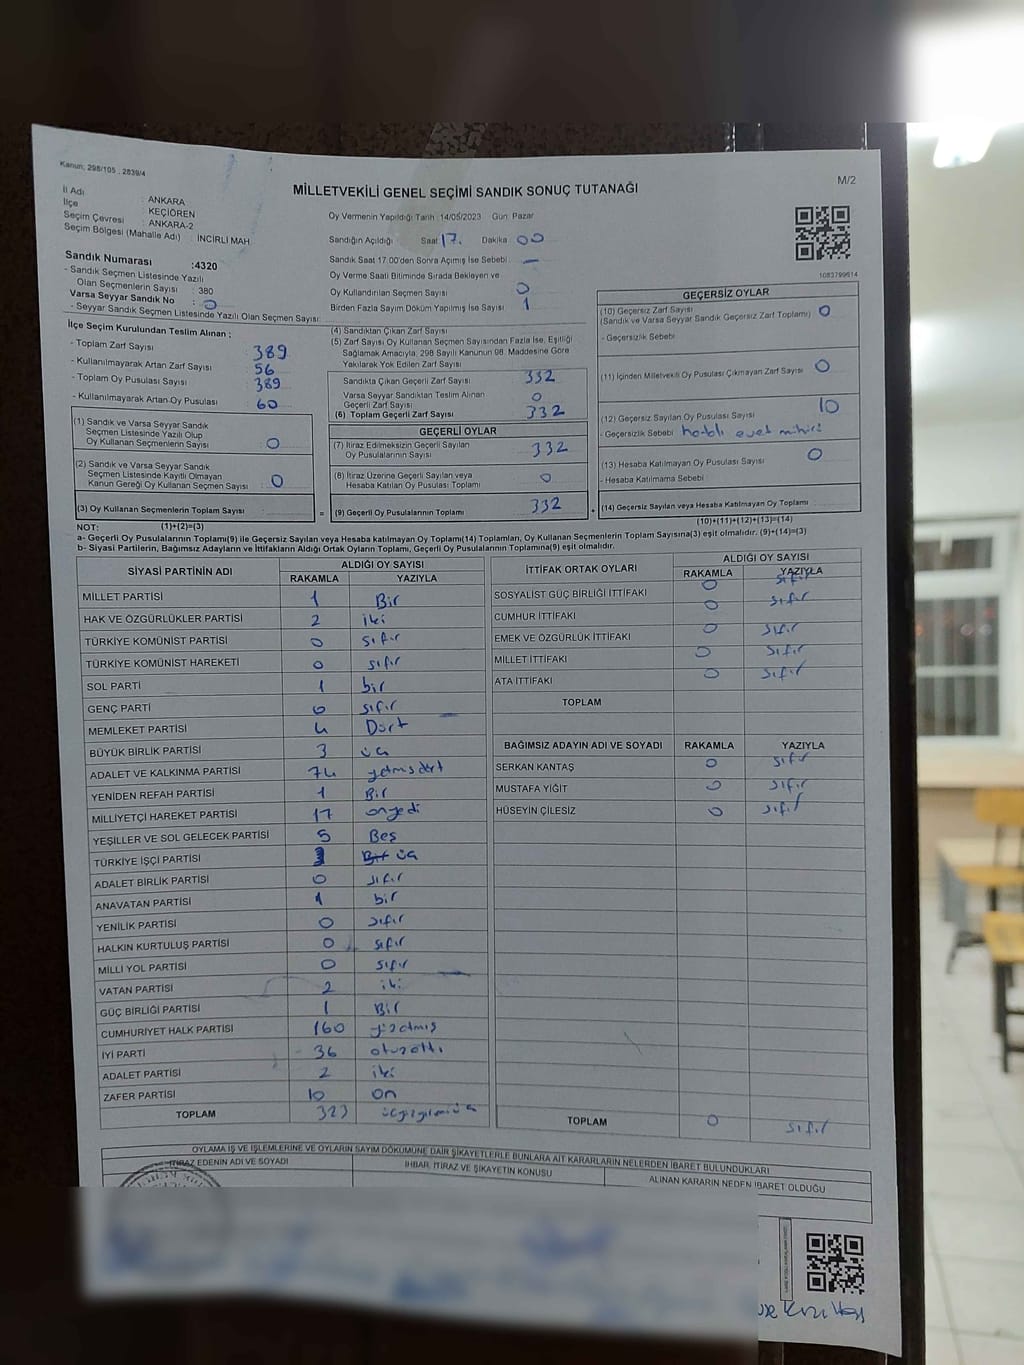 Kanun: 298/105 . 2839/4
MİLLETVEKİLİ GENEL SEÇİMİ SANDIK SONUÇ TUTANAĞI
M/2
İl Adı : ANKARA
İlçe : KEÇİÖREN
Seçim Çevresi : ANKARA-2
Seçim Bölgesi (Mahalle Adı) : İNCİRLİ MAH
Sandık Numarası : 4320
- Sandık Seçmen Listesinde Yazılı
Olan Seçmenlerin Sayısı : 380
Varsa Seyyar Sandık No : 0
- Seyyar Sandık Seçmen Listesinde Yazılı Olan Seçmen Sayısı:
Oy Vermenin Yapıldığı Tarih :14/05/2023 Gün: Pazar
Sandığın Açıldığı Saat 17. Dakika 00
Sandık Saat 17:00'den Sonra Açımış İse Sebebi : —
Oy Verme Saati Bitiminde Sırada Bekleyen ve
Oy Kullandırılan Seçmen Sayısı : 0
Birden Fazla Sayım Döküm Yapılmış İse Sayısı : 1
1083799614
İlçe Seçim Kurulundan Teslim Alınan ;
- Toplam Zarf Sayısı : 389
- Kullanılmayarak Artan Zarf Sayısı : 56
- Toplam Oy Pusulası Sayısı : 389
- Kullanılmayarak Artan Oy Pusulası : 60
(1) Sandık ve Varsa Seyyar Sandık
Seçmen Listesinde Yazılı Olup
Oy Kullanan Seçmenlerin Sayısı : 0
(2) Sandık ve Varsa Seyyar Sandık
Seçmen Listesinde Kayıtlı Olmayan
Kanun Gereği Oy Kullanan Seçmen Sayısı : 0
(3) Oy Kullanan Seçmenlerin Toplam Sayısı
(4) Sandıktan Çıkan Zarf Sayısı
(5) Zarf Sayısı Oy Kullanan Seçmen Sayısından Fazla İse, Eşitliği
Sağlamak Amacıyla; 298 Sayılı Kanunun 98. Maddesine Göre
Yakılarak Yok Edilen Zarf Sayısı
Sandıkta Çıkan Geçerli Zarf Sayısı : 332
Varsa Seyyar Sandıktan Teslim Alınan
Geçerli Zarf Sayısı : 0
(6) Toplam Geçerli Zarf Sayısı : 332
GEÇERLİ OYLAR
(7) İtiraz Edilmeksizin Geçerli Sayılan
Oy Pusulalarının Sayısı : 332
(8) İtiraz Üzerine Geçerli Sayılan veya
Hesaba Katılan Oy Pusulası Toplamı : 0
= (9) Geçerli Oy Pusulalarının Toplamı : 332
GEÇERSİZ OYLAR
(10) Geçersiz Zarf Sayısı : 0
(Sandık ve Varsa Seyyar Sandık Geçersiz Zarf Toplamı)
- Geçersizlik Sebebi
(11) İçinden Milletvekili Oy Pusulası Çıkmayan Zarf Sayısı : 0
(12) Geçersiz Sayılan Oy Pusulası Sayısı : 10
- Geçersizlik Sebebi : hatalı evet mührü
(13) Hesaba Katılmayan Oy Pusulası Sayısı : 0
- Hesaba Katılmama Sebebi
+ (14) Geçersiz Sayılan veya Hesaba Katılmayan Oy Toplamı
NOT: (1)+(2)=(3) (10)+(11)+(12)+(13)=(14)
a- Geçerli Oy Pusulalarının Toplamı(9) ile Geçersiz Sayılan veya Hesaba katılmayan Oy Toplamı(14) Toplamları, Oy Kullanan Seçmenlerin Toplam Sayısına(3) eşit olmalıdır. (9)+(14)=(3)
b- Siyasi Partilerin, Bağımsız Adayların ve İttifakların Aldığı Ortak Oyların Toplamı, Geçerli Oy Pusulalarının Toplamına(9) eşit olmalıdır.
SİYASİ PARTİNİN ADI ALDIĞI OY SAYISI
RAKAMLA YAZIYLA
MİLLET PARTİSİ 1 Bir
HAK VE ÖZGÜRLÜKLER PARTİSİ 2 iki
TÜRKİYE KOMÜNİST PARTİSİ 0 sıfır
TÜRKİYE KOMÜNİST HAREKETİ 0 sıfır
SOL PARTİ 1 bir
GENÇ PARTİ 0 sıfır
MEMLEKET PARTİSİ 4 Dört
BÜYÜK BİRLİK PARTİSİ 3 üç
ADALET VE KALKINMA PARTİSİ 74 yetmişdört
YENİDEN REFAH PARTİSİ 1 Bir
MİLLİYETÇİ HAREKET PARTİSİ 17 onyedi
YEŞİLLER VE SOL GELECEK PARTİSİ 5 Beş
TÜRKİYE İŞÇİ PARTİSİ 3 Bir üç
ADALET BİRLİK PARTİSİ 0 sıfır
ANAVATAN PARTİSİ 1 bir
YENİLİK PARTİSİ 0 sıfır
HALKIN KURTULUŞ PARTİSİ 0 sıfır
MİLLİ YOL PARTİSİ 0 sıfır
VATAN PARTİSİ 2 iki
GÜÇ BİRLİĞİ PARTİSİ 1 Bir
CUMHURİYET HALK PARTİSİ 160 yüzatmış
İYİ PARTİ 36 otuzaltı
ADALET PARTİSİ 2 iki
ZAFER PARTİSİ 10 on
TOPLAM 323 üçyüzyirmiüç
İTTİFAK ORTAK OYLARI ALDIĞI OY SAYISI
RAKAMLA YAZIYLA
SOSYALİST GÜÇ BİRLİĞİ İTTİFAKI 0 sıfır
CUMHUR İTTİFAKI 0 sıfır
EMEK VE ÖZGÜRLÜK İTTİFAKI 0 sıfır
MİLLET İTTİFAKI 0 sıfır
ATA İTTİFAKI 0 sıfır
TOPLAM
BAĞIMSIZ ADAYIN ADI VE SOYADI RAKAMLA YAZIYLA
SERKAN KANTAŞ 0 sıfır
MUSTAFA YİĞİT 0 sıfır
HÜSEYİN ÇİLESİZ 0 sıfır
TOPLAM 0 sıfır
OYLAMA İŞ VE İŞLEMLERİNE VE OYLARIN SAYIM DÖKÜMÜNE DAİR ŞİKAYETLERLE BUNLARA AİT KARARLARIN NELERDEN İBARET BULUNDUKLARI
İTİRAZ EDENİN ADI VE SOYADI
İHBAR, İTİRAZ VE ŞİKAYETİN KONUSU
ALINAN KARARIN NEDEN İBARET OLDUĞU